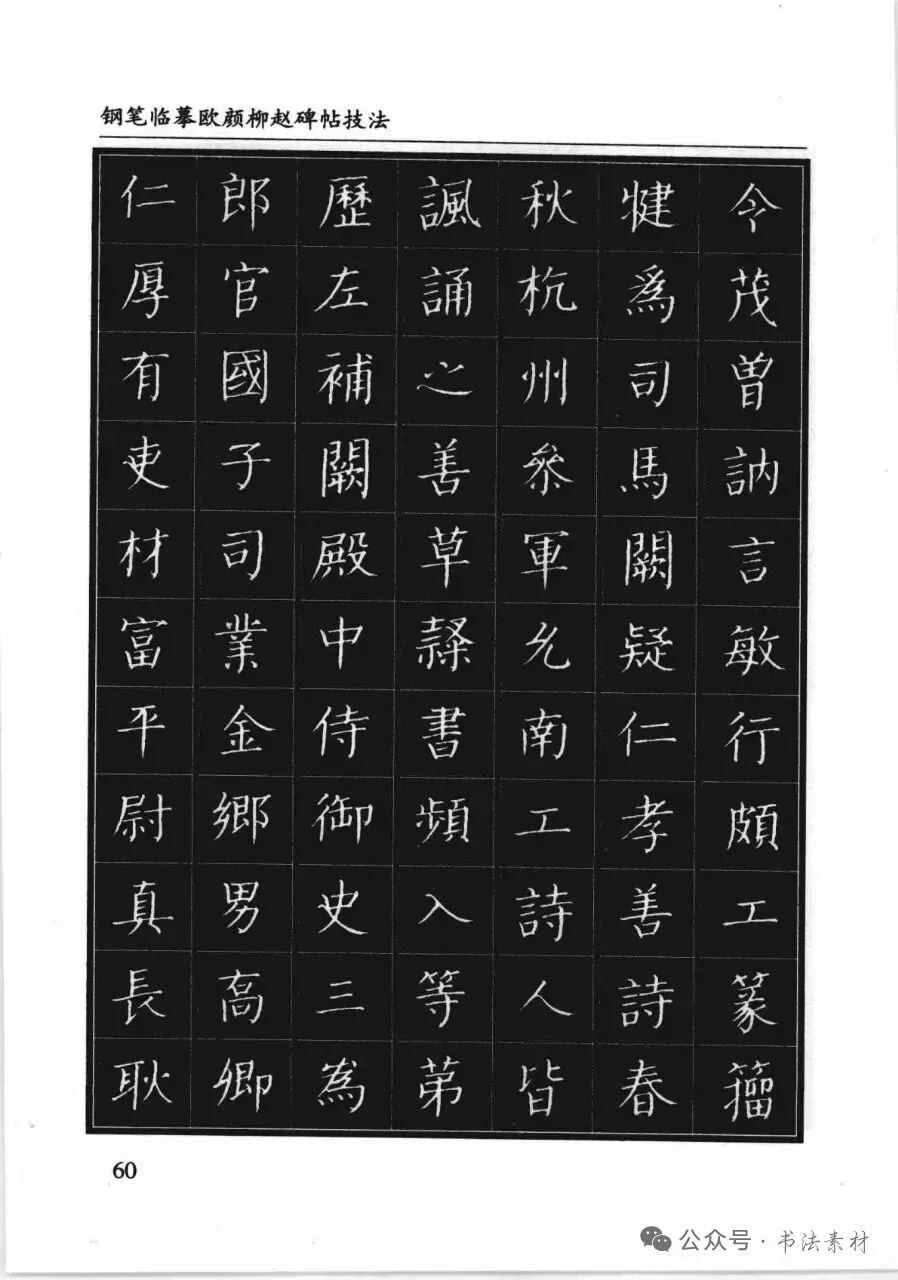 钢笔临摹欧颜柳赵碑帖技法
令茂曽訥言敏行頗工篆籀
犍爲司馬闕疑仁孝善詩春
秋杭州參軍允南工詩人皆
諷誦之善草隸書頻入等苐
歷左補闕殿中侍御史三為
郎官國子司業金鄉男高卿
仁厚有吏材富平尉真長耿
60
公众号·书法素材